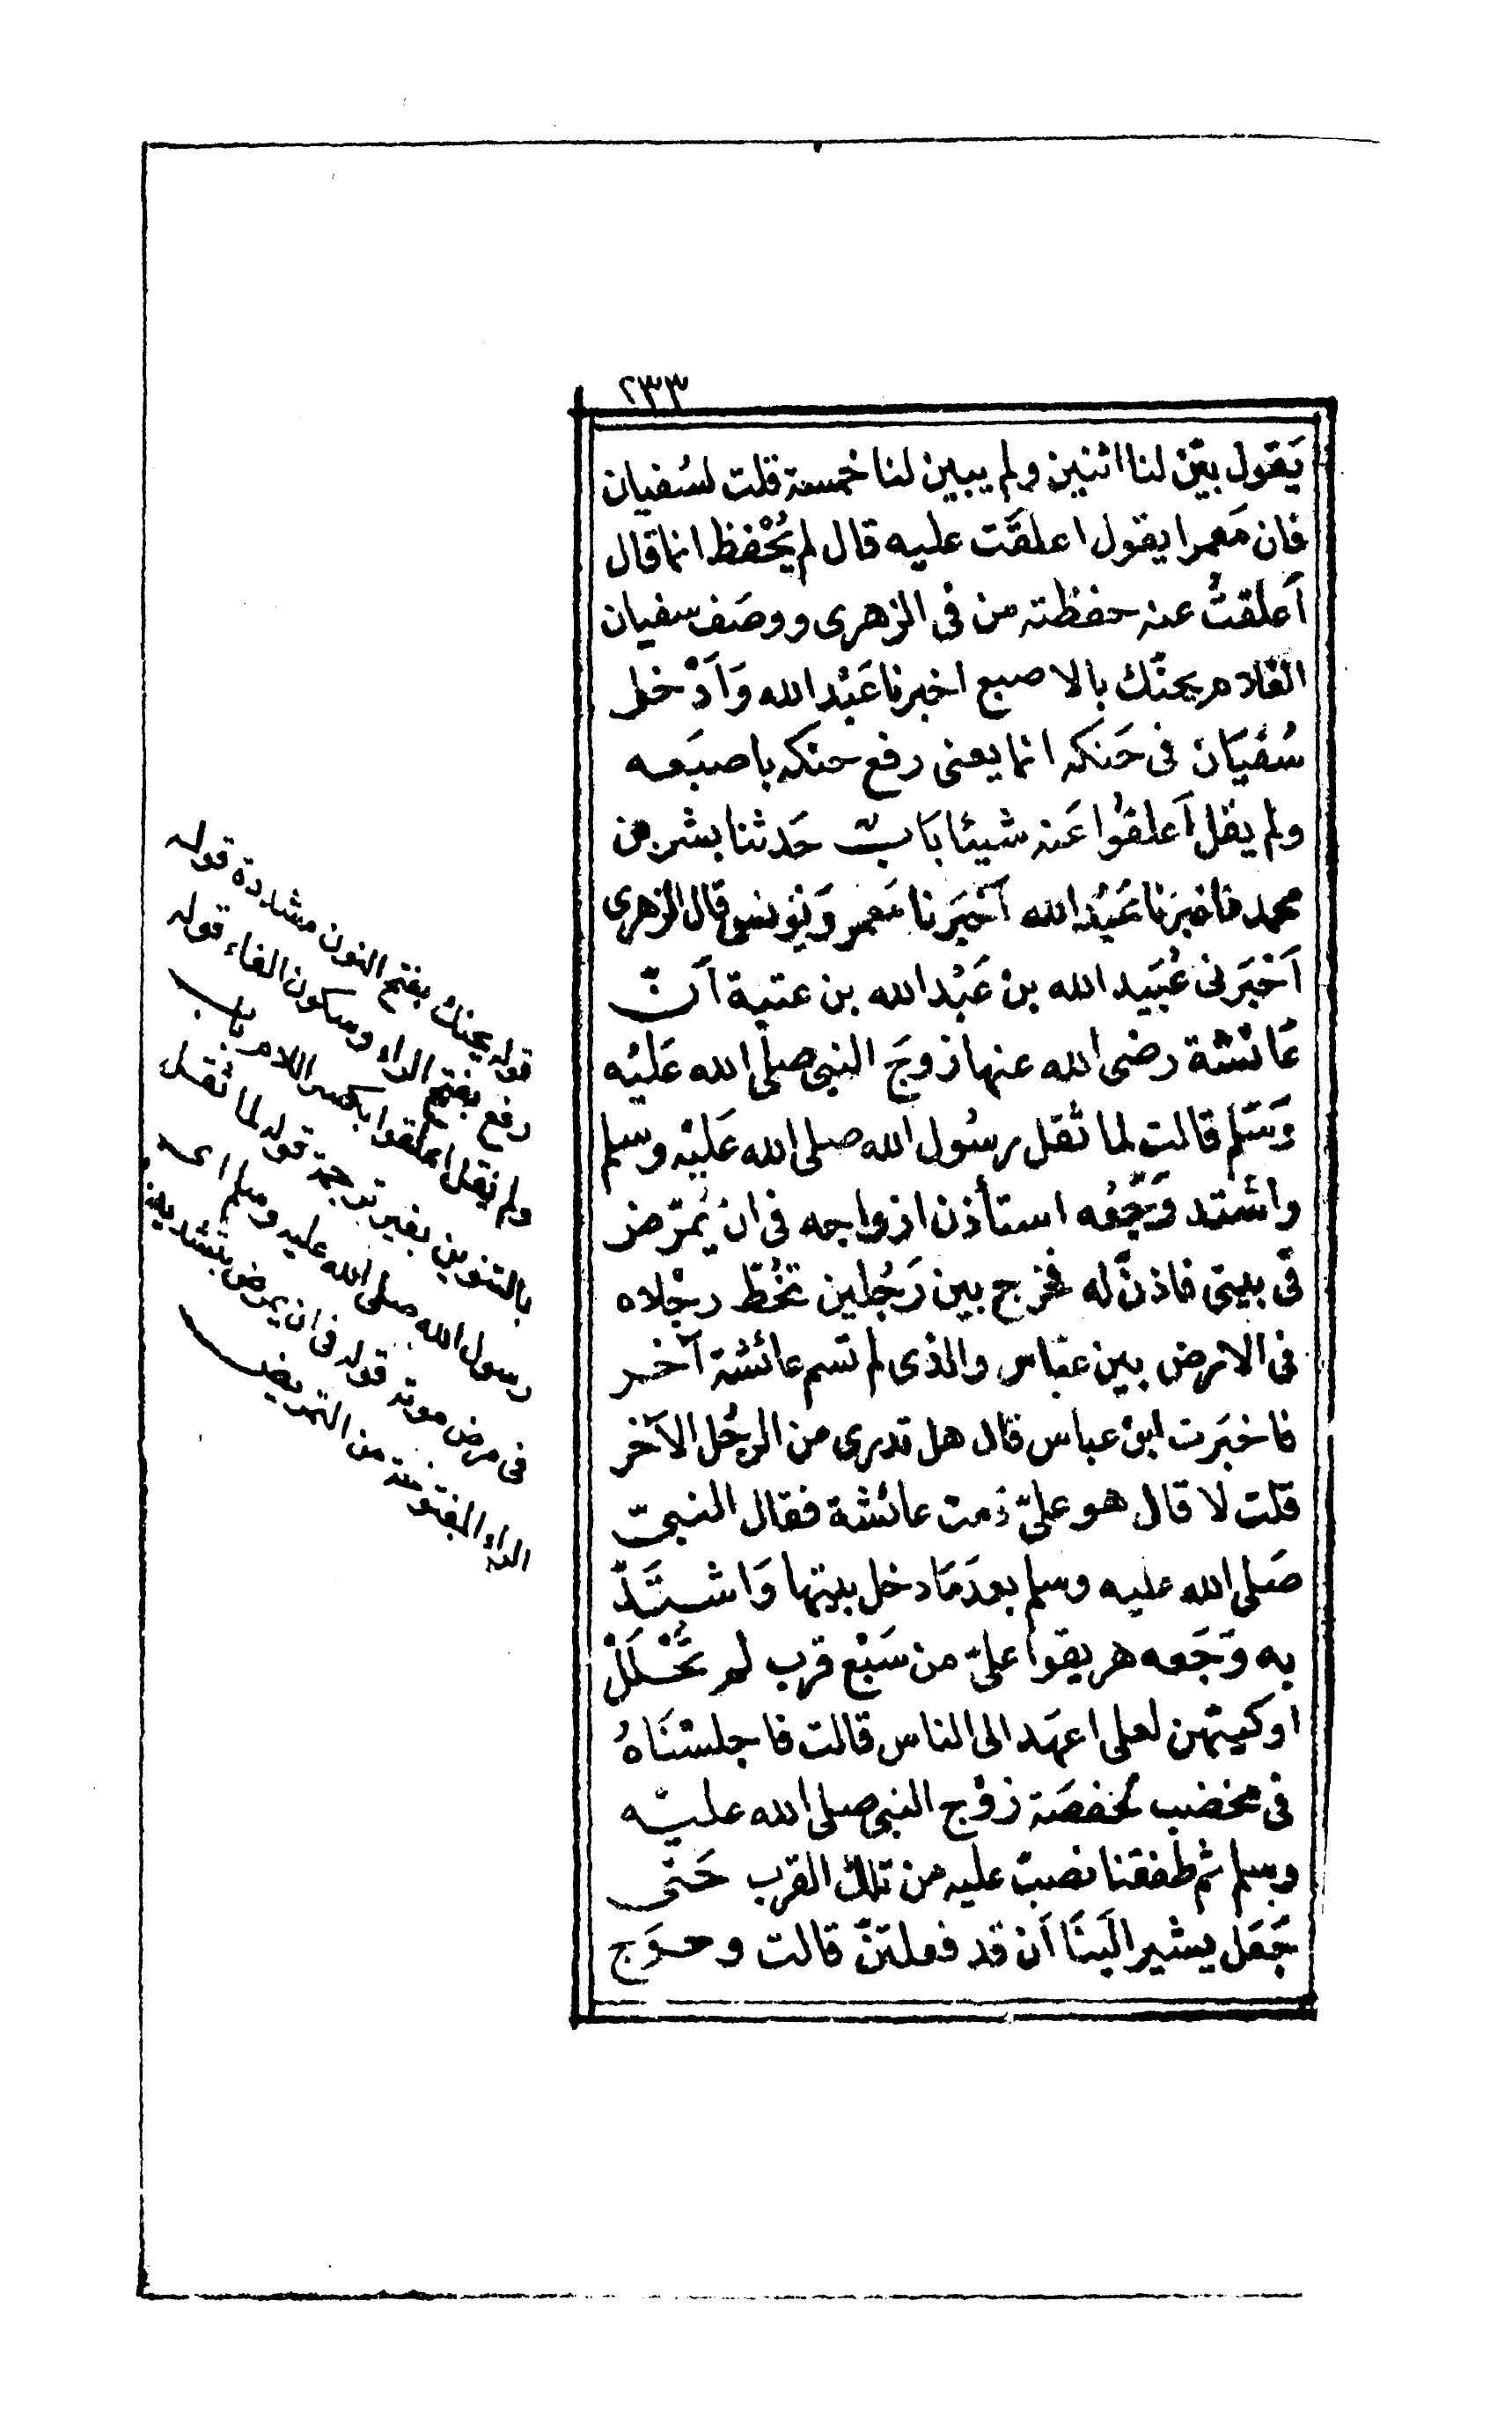 ٢٣٣
يَقول بيّن لنا اثنين ولم يبين لنا خمسة قلت لسُفيان
فان مَعمرا يقول اعلقَت عليه قال لم يُحْفظ انما قال
أَعلقتُ عنه حفظته من فى الزهرى ووصَف سفيان
الغلام يحنّك بالاصبع اخبرنا عَبْد الله وَأدْخل
سُفيَان فى حَنكه انما يعنى رفع حنكه باصبَعه
ولم يقل أعلقوُا عَنه شيئا بَابٌ حَدثنا بشر بن
محمد فاخبرَنا عَبْد الله أخبَرنا مَعمر وَيونس قال الزهرى
اَخبَرنى عُبَيد الله بن عَبْد الله بن عتبة أنّ
عَائشة رضى الله عنها زوجَ النبى صلى الله عَليْه
وَسَلم قالت لما ثقل رسُول الله صلى الله عَليْه وسلم
واشتد وَجَعُه استأذن ازواجه فى انْ يُمرّض
فى بيتى فاذنّ له فخرج بين رَجُلين تخُطّ رجْلاه
فى الارض بين عبّاس والذى لم تسم عائشة آخر
فاخبَرت ابن عباس قال هل تدرى من الرجُل الآخر
قلت لا قال هو علىّ زمت عائشة فقال النبىّ
صَلى الله عليه وسلم بعدَمَا دخل بيتها وَاشتَدّ
به وَجَعه هريقوا علىّ من سَبْع قرب لم تُحْلَلْ
اوكيتهن لعلى اعهَد الى الناس قالت فاجلسْنَاهُ
فى مخضب لحفصَة زوْج النبى صلى الله عليْه
وسلم ثم طفقنا نصبّ عليه من تلك القرب حَتى
جَعَل يشير الَينَا اَن قد فعلتنّ قالت وخرَج
قوله يحنك بفتح النون مشددة قوله
رفع بفتح الراء وسكون الفاء قوله
ولم يقل اعلقوا بكسر اللام باب
بالتنوين بغير ترجمة قوله لما ثقل
رسول الله صلى الله عليه وسلم اى
فى مرض موته قوله فى ان يمرض بتشديد
الراء المفتوحة من التمريض